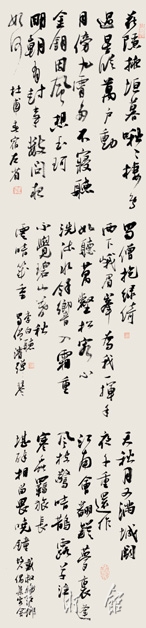 花隱掖垣暮啾啾棲鳥
過星臨萬戶動
月傍九霄多不寢聽
金鑰因風想玉珂
明朝有封事數問夜
如何 杜甫春宿左省
蜀僧抱綠綺
西下峨眉峰為我揮手
如聽萬壑松客心
洗流水餘響入霜鐘
不覺碧山暮秋
雲暗幾重 李白聽蜀僧濬彈琴
天秋月又滿城闕
夜千重還作
江南會翻疑夢裏逢
風枝驚暗鵲露草泣
寒蟲羈旅長
堪醉相留畏曉鐘 戴叔倫江鄉故人偶集客舍